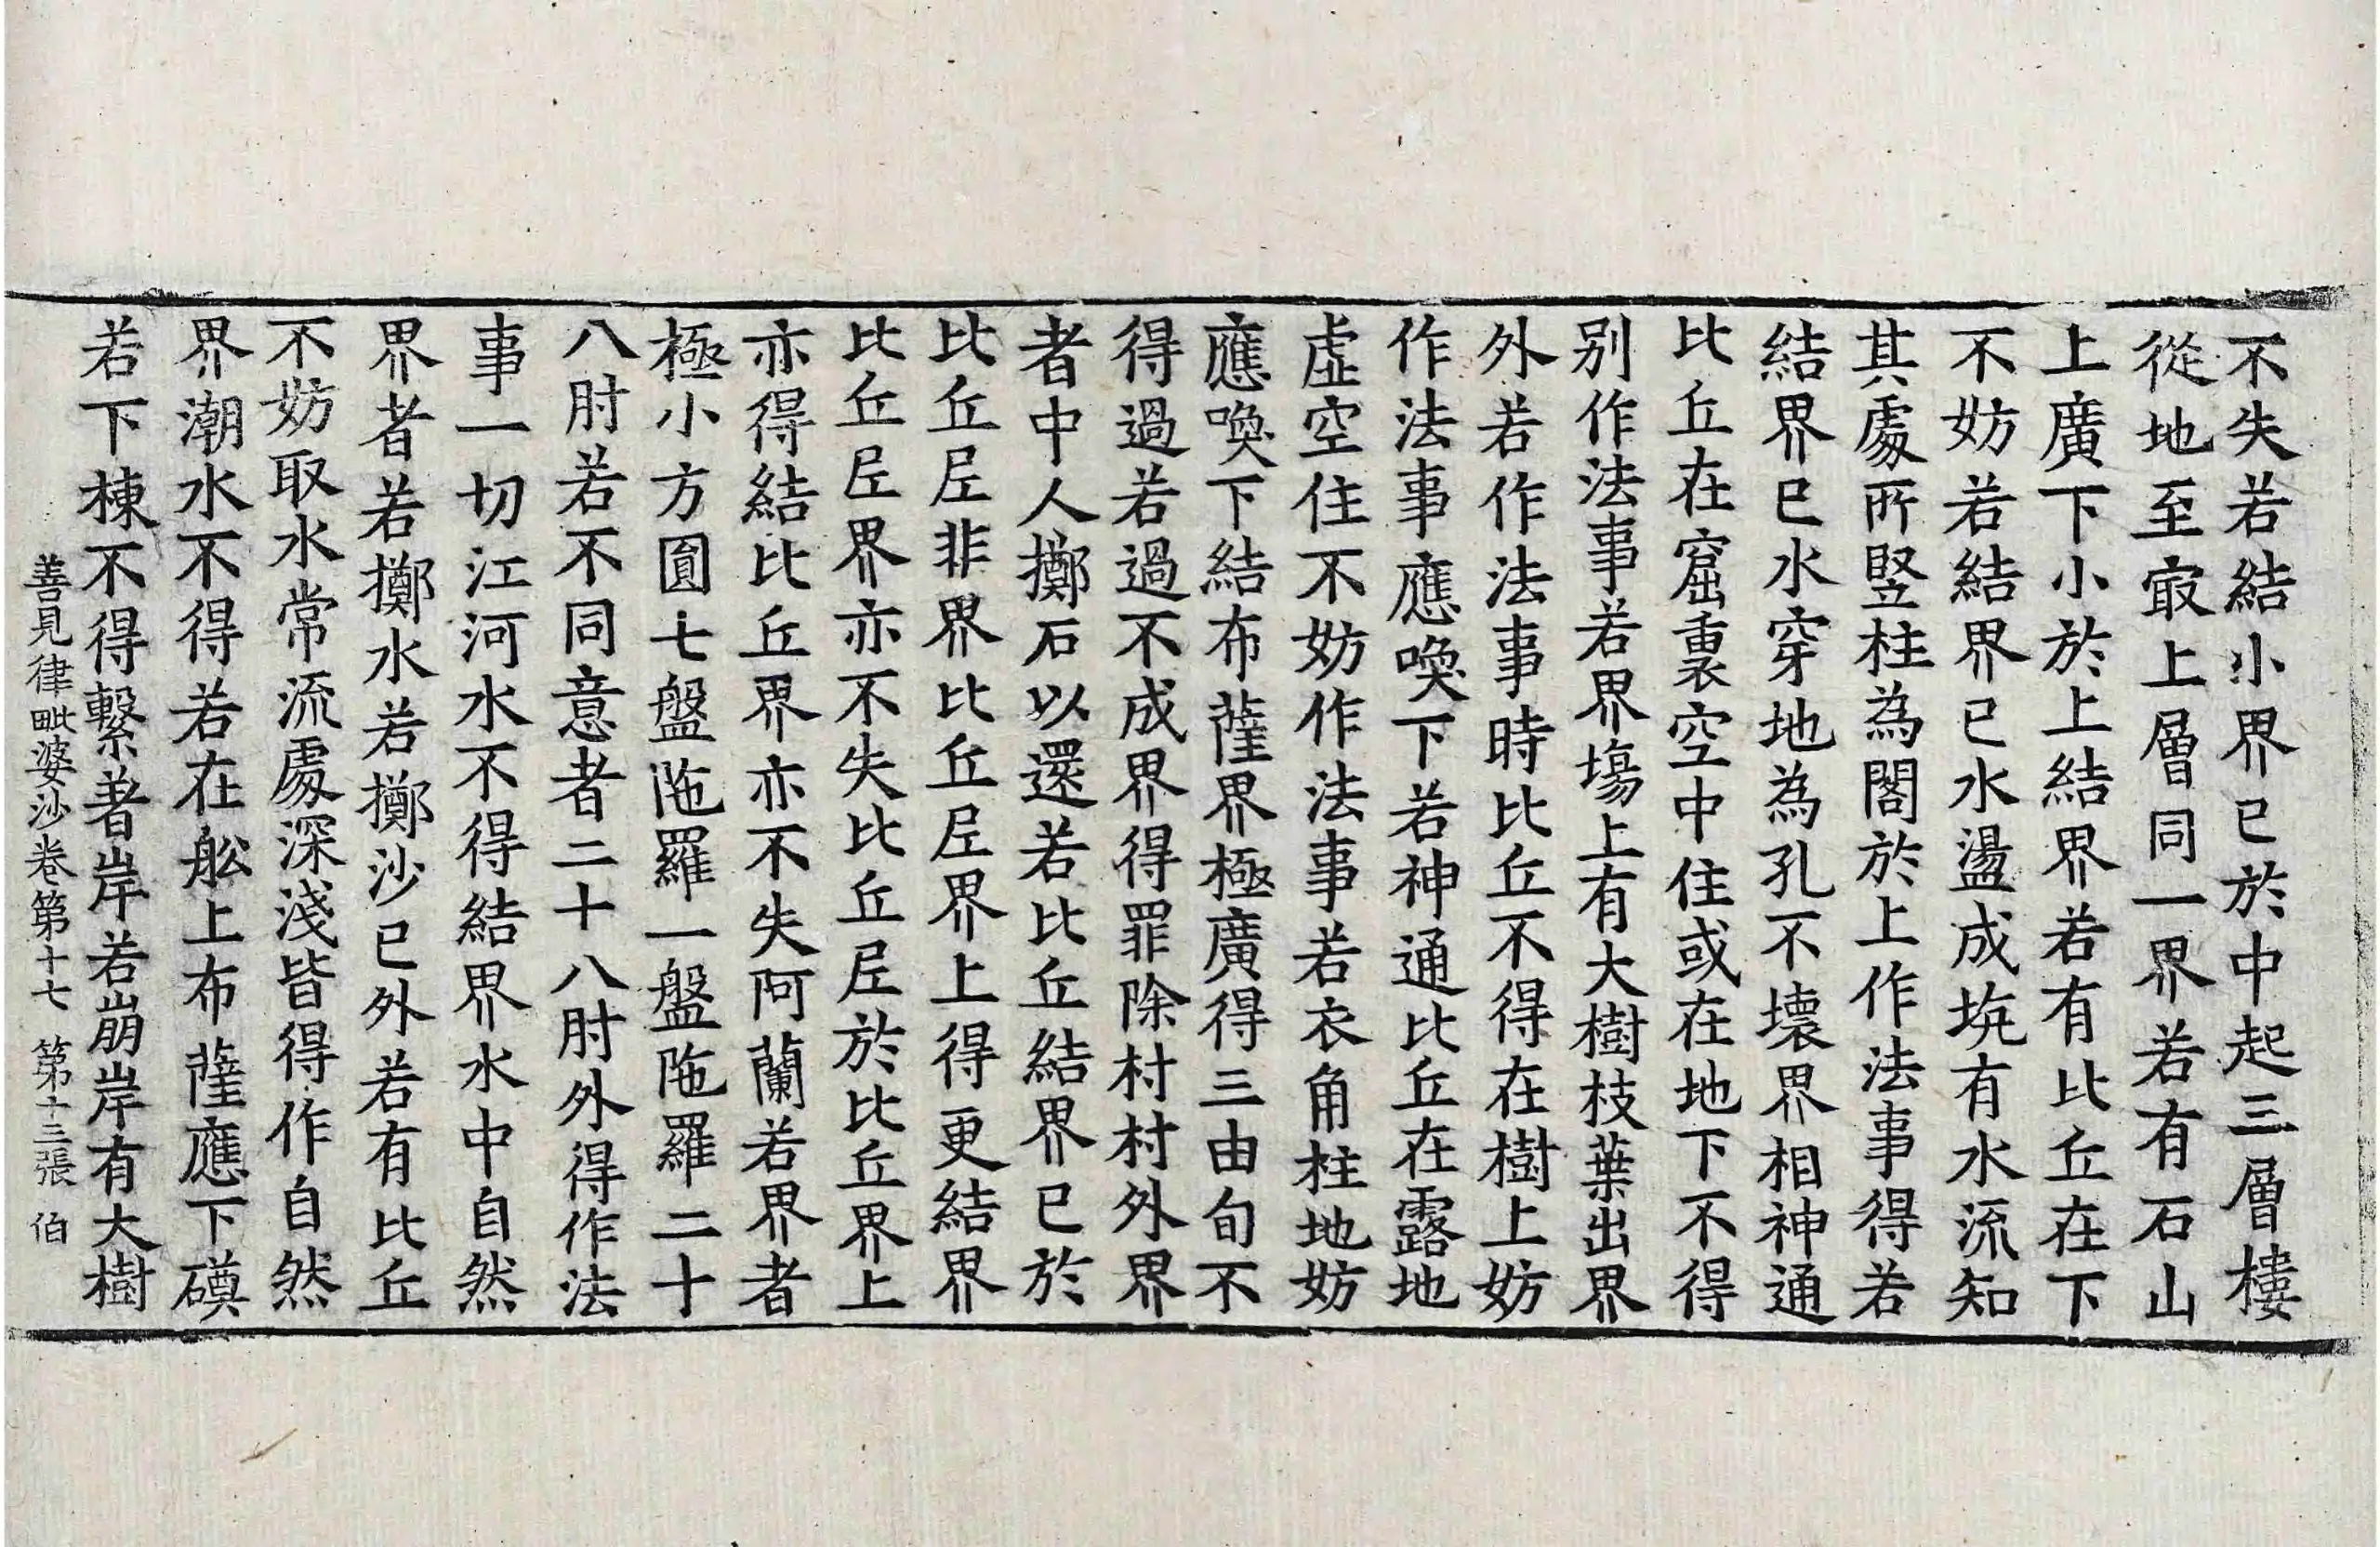 不失若結小界已於中起三層樓
從地至㝡上層同一界若有石山
上廣下小於上結界若有比丘在下
不妨若結界已水盪成坑有水流知
其處所竪柱為閣於上作法事得若
結界已水穿地為孔不壞界相神通
比丘在窟裏空中住或在地下不得
别作法事若界塲上有大樹枝葉出界
外若作法事時比丘不得在樹上妨
作法事應喚下若神通比丘在露地
虛空住不妨作法事若衣角柱地妨
應喚下結布薩界極廣得三由旬不
得過若過不成界得罪除村村外界
者中人擲石以還若比丘結界已於
比丘𡰱非界比丘𡰱界上得更結界
比丘𡰱界亦不失比丘𡰱於比丘界上
亦得結比丘界亦不失阿蘭若界者
極小方圎七盤陁羅一盤陁羅二十
八肘若不同意者二十八肘外得作法
事一切江河水不得結界水中自然
界者若擲水若擲沙已外若有比丘
不妨取水常流處深淺皆得作自然
界潮水不得若在舩上布薩應下磸
若下棟不得繫著岸若崩岸有大樹
善見律毗婆沙卷第十七 第十三張 伯